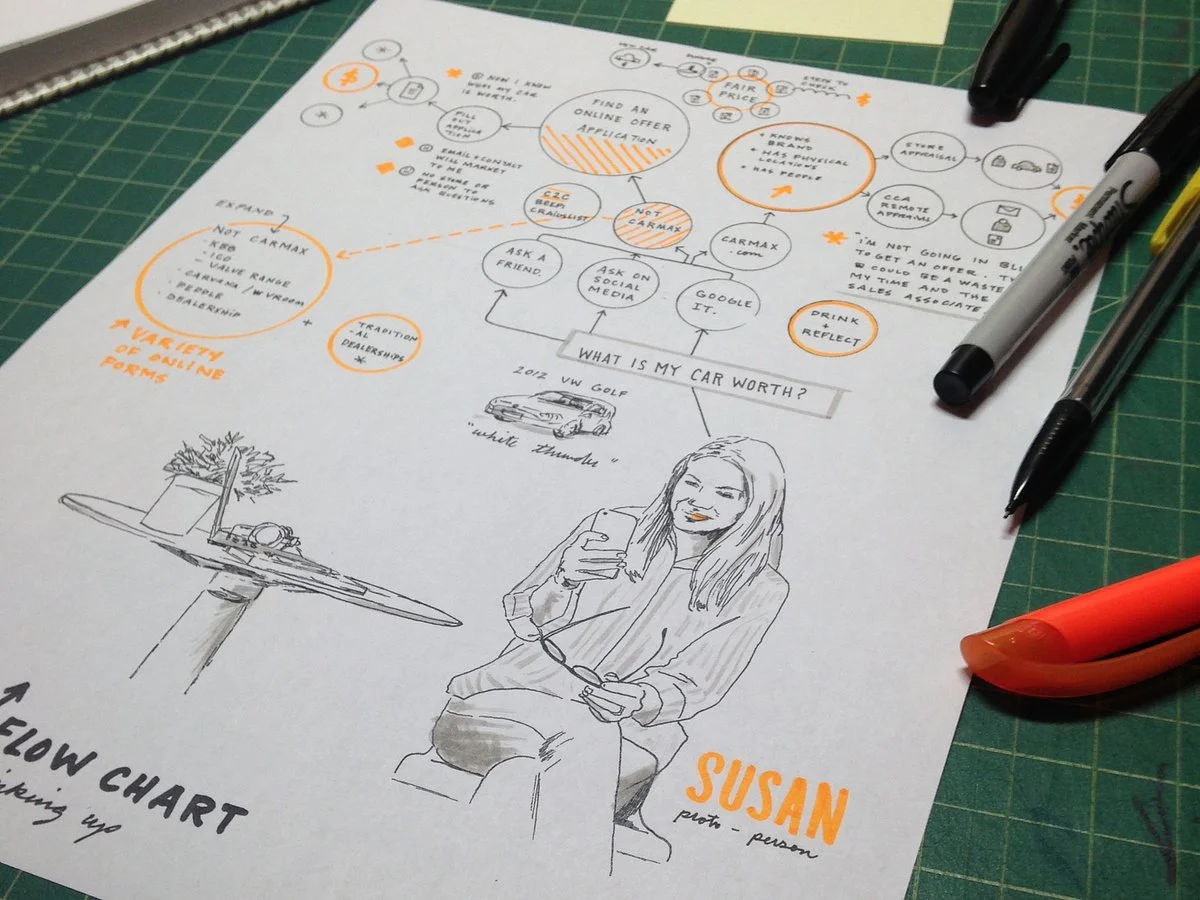 FAIR
PRICE
STEPS TO
CHECK
NOW I KNOW
WHAT MY CAR
IS WORTH.
FILL
OUT
APPLICA
TION
FIND AN
ONLINE OFFER
APPLICATION
+ KNOWS
BRAND
+ HAS PHYSICAL
LOCATIONS
+ HAS PEOPLE
STORE
APPRAISAL
CCA
REMOTE
APPRAISAL
EMAIL + CONTACT
WILL MARKET
TO ME
NO STORE OR
PERSON TO
ASK QUESTIONS
C2C
BEEPI
CRAIGSLIST
NOT
CARMAX
CARMAX
.com
"I'M NOT GOING IN
TO GET AN OFFER.
COULD BE A WASTE
MY TIME AND THE
SALES ASSOCIATE
EXPAND
NOT CARMAX
- KBB
- ICO
- VALUE RANGE
- CARVANA / VVROOM
- PEOPLE
- DEALERSHIP
ASK A
FRIEND.
ASK ON
SOCIAL
MEDIA
GOOGLE
IT.
DRINK
+
REFLECT
+
TRADITION
-AL
DEALERSHIPS
VARIETY
OF ONLINE
FORMS
WHAT IS MY CAR WORTH?
2012 VW GOLF
"white thunder"
FLOW CHART
up
SUSAN
proto - person
Sharpie